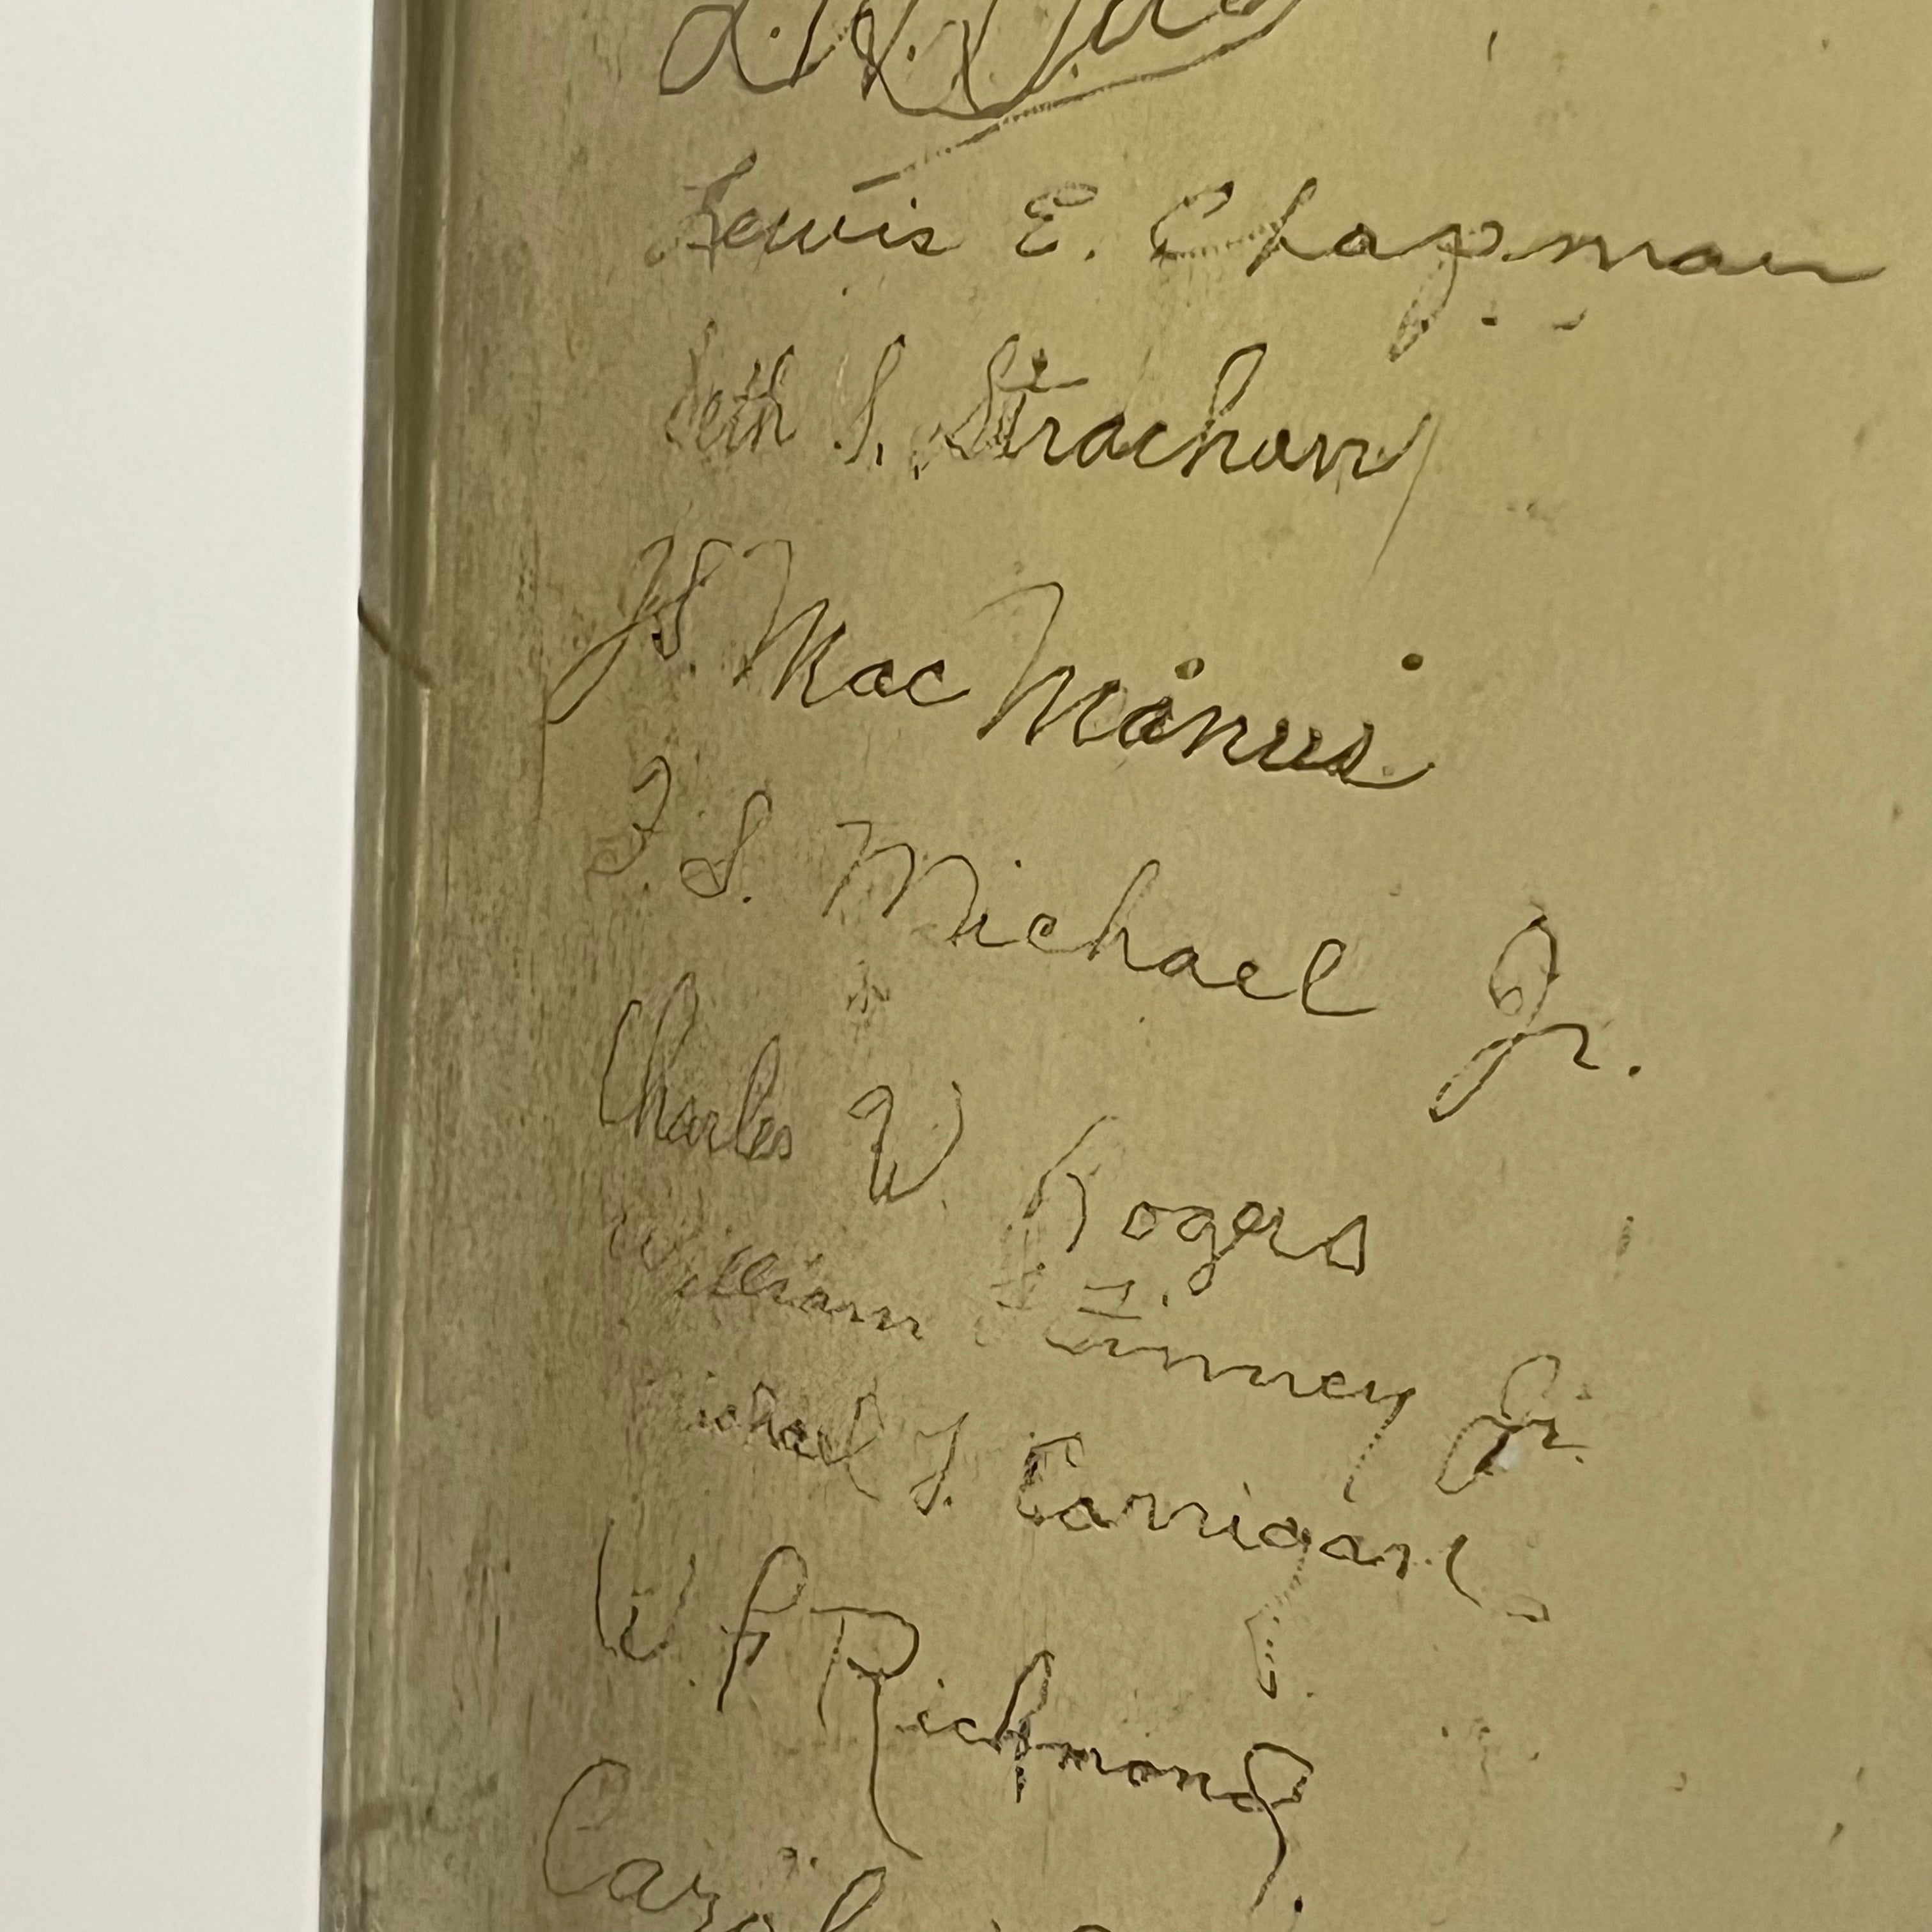 Lewis E. Chapman
Seth S. Strachan
MacManus
F. S. Michael Jr.
Charles W. Rogers
William Jr.
Michael J. Carrigan
W. P. Richmond